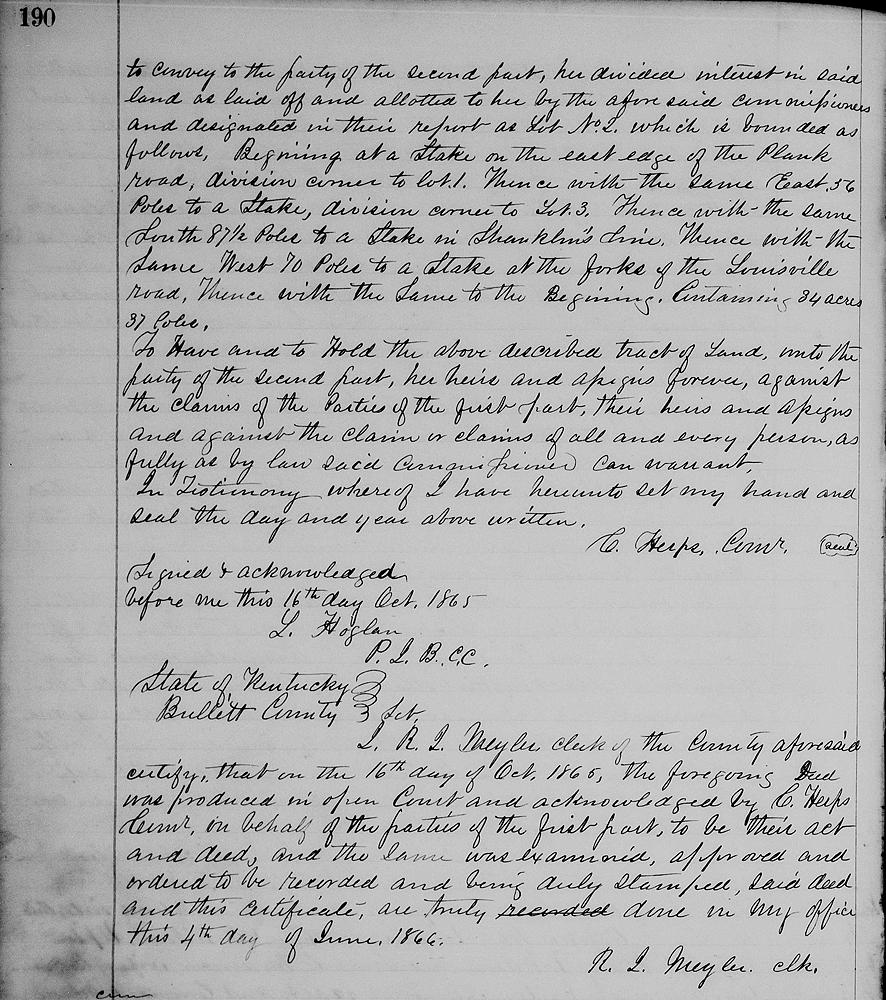 190
to convey to the party of the second part, her divided interest in said
land as laid off and allotted to her by the afore said commissioners
and designated in their report as Lot No. 2. which is bounded as
follows, Begining at a Stake on the east edge of the Plank
road, division corner to lot. 1. Thence with the same East. 56
Poles to a Stake, division corner to Lot. 3. Thence with the same
South 87 1/2 Poles to a Stake in Shanklin's Line. Thence with the
same West 70 Poles to a Stake at the forks of the Louisville
road, Thence with the Same to the Begining. Containing 34 acres
37 Poles.
To Have and to Hold the above described tract of Land, unto the
party of the second part, her heirs and assigns forever, against
the claims of the Parties of the first part, their heirs and assigns
and against the claim or claims of all and every person, as
fully as by law said Commissioner can warrant.
In Testimony whereof I have hereunto set my hand and
seal the day and year above written.
C. Herps, Comr. seal
Signed & acknowledged
before me this 16th day Oct. 1865
L. Hoglan
P. J. B. C.C.
State of Kentucky
Bullett County Sct,
I. R. J. Meyler clerk of the County aforesaid
certify, that on the 16th day of Oct. 1865, the foregoing Deed
was produced in open Court and acknowledged by C. Herps
Comr, on behalf of the parties of the first part, to be their act
and deed, and the Same was examined, approved and
ordered to be recorded and being duly stamped, said deed
and this certificate, are truly recorded done in my office
this 4th day of June. 1866.
R. J. Meyler. clk.